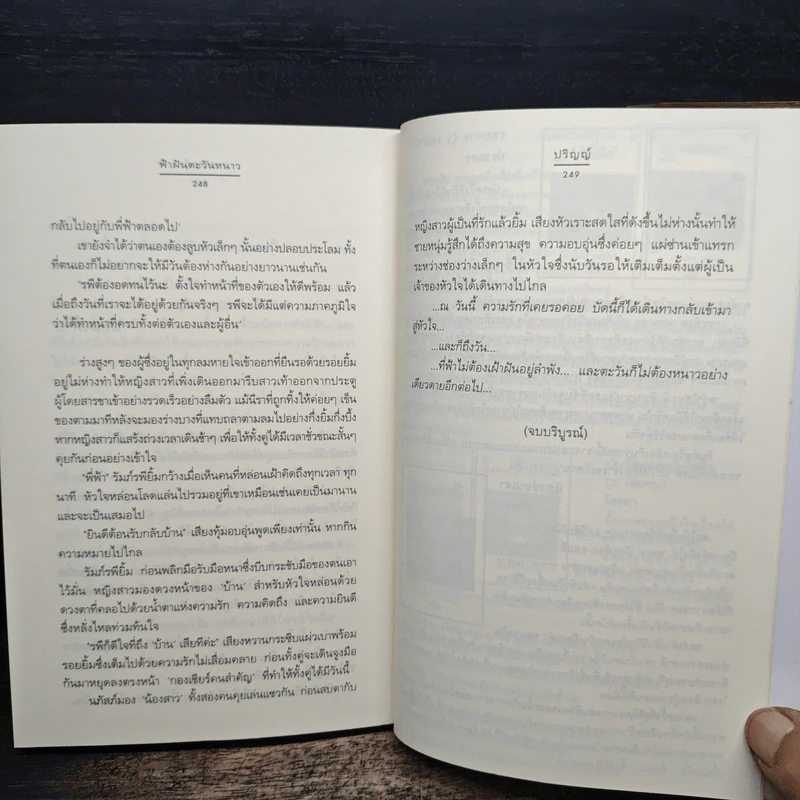 ฟ้าฝันตะวันหนาว
248
กลับไปอยู่กับพี่ฟ้าตลอดไป'
เขายังจำได้ว่าตนเองต้องลูบหัวเล็กๆ นั้นอย่างปลอบประโลม ทั้ง
ที่ตนเองก็ไม่อยากจะให้มีวันต้องห่างกันอย่างยาวนานเช่นกัน
'รพีต้องอดทนไว้นะ ตั้งใจทำหน้าที่ของตัวเองให้ดีพร้อม แล้ว
เมื่อถึงวันที่เราจะได้อยู่ด้วยกันจริงๆ รพีจะได้มีแต่ความภาคภูมิใจ
ว่าได้ทำหน้าที่ครบทั้งต่อตัวเองและผู้อื่น'
ร่างสูงๆ ของผู้ซึ่งอยู่ในทุกลมหายใจเข้าออกที่ยืนรอด้วยรอยยิ้ม
อยู่ไม่ห่างทำให้หญิงสาวที่เพิ่งเดินออกมารีบสาวเท้าออกจากประตู
ผู้โดยสารขาเข้าอย่างรวดเร็วอย่างลืมตัว แม้นีราที่ถูกทิ้งให้ค่อยๆ เข็น
ของตามมาทีหลังจะมองร่างบางที่แทบถลาตามลมไปอย่างกึ่งยิ้มกึ่งบึ้ง
หากหญิงสาวก็แสร้งถ่วงเวลาเดินช้าๆ เพื่อให้ทั้งคู่ได้มีเวลาชั่วขณะสั้นๆ
คุยกันก่อนอย่างเข้าใจ
"พี่ฟ้า" รัมภ์รพียิ้มกว้างเมื่อเห็นคนที่หล่อนเฝ้าคิดถึงทุกเวลา ทุก
นาที หัวใจหล่อนโลดแล่นไปรวมอยู่ที่เขาเหมือนเช่นเคยเป็นมานาน
และจะเป็นเสมอไป
"ยินดีต้อนรับกลับบ้าน" เสียงทุ้มอบอุ่นพูดเพียงเท่านั้น หากกิน
ความหมายไปไกล
รัมภ์รพียิ้ม ก่อนพลิกมือรับมือหนาซึ่งบีบกระชับมือของตนเอา
ไว้มั่น หญิงสาวมองดวงหน้าของ 'บ้าน' สำหรับหัวใจหล่อนด้วย
ดวงตาที่คลอไปด้วยน้ำตาแห่งความรัก ความคิดถึง และความยินดี
ซึ่งหลั่งไหลท่วมท้นใจ
"รพีก็ดีใจที่ถึง 'บ้าน' เสียทีค่ะ" เสียงหวานกระซิบแผ่วเบาพร้อม
รอยยิ้มซึ่งเต็มไปด้วยความรักไม่เสื่อมคลาย ก่อนทั้งคู่จะเดินจูงมือ
กันมาหยุดลงตรงหน้า 'กองเชียร์คนสำคัญ' ที่ทำให้ทั้งคู่ได้มีวันนี้
นภัสภ์มอง 'น้องสาว' ทั้งสองคนคุยเล่นแซวกัน ก่อนสบตากับ
ปริญญ์
249
หญิงสาวผู้เป็นที่รักแล้วยิ้ม เสียงหัวเราะสดใสที่ดังขึ้นไม่ห่างนั้นทำให้
ชายหนุ่มรู้สึกได้ถึงความสุข ความอบอุ่นซึ่งค่อยๆ แผ่ซ่านเข้าแทรก
ระหว่างช่องว่างเล็กๆ ในหัวใจซึ่งนับวันรอให้เติมเต็มตั้งแต่ผู้เป็น
เจ้าของหัวใจได้เดินทางไปไกล
...ณ วันนี้ ความรักที่เคยรอคอย บัดนี้ก็ได้เดินทางกลับเข้ามา
สู่หัวใจ...
...และก็ถึงวัน...
...ที่ฟ้าไม่ต้องเฝ้าฝันอยู่ลำพัง... และตะวันก็ไม่ต้องหนาวอย่าง
เดียวดายอีกต่อไป...
(จบบริบูรณ์)